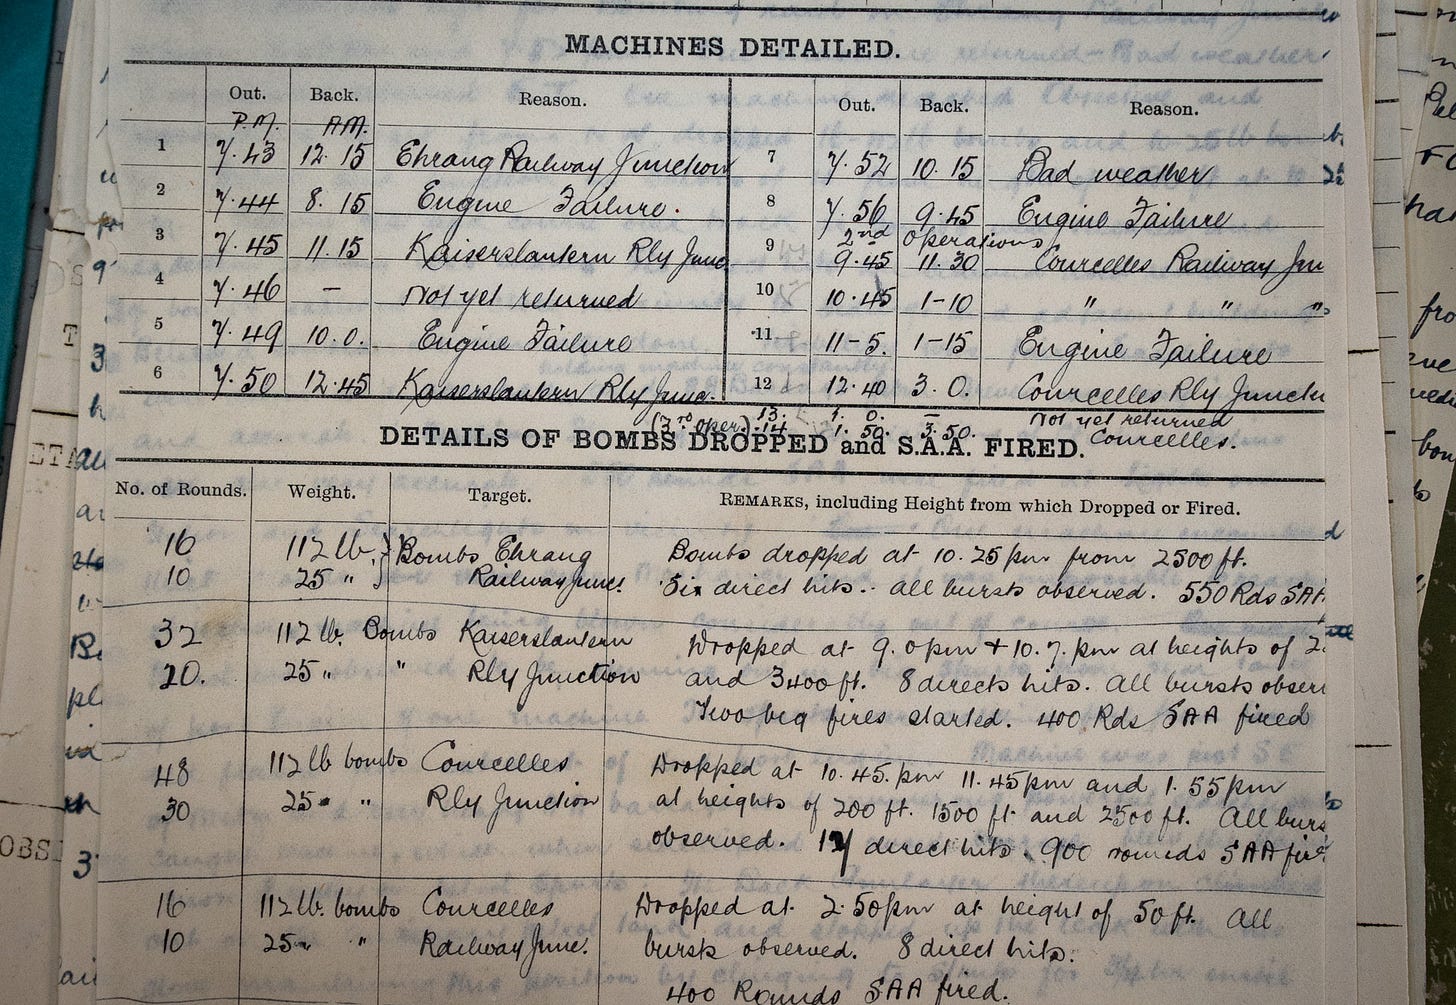 MACHINES DETAILED.
Out. Back. Reason. Out. Back. Reason.
P.M. A.M.
1 7.43 12.15 Ehrang Railway Junction
2 7.44 8.15 Engine Failure.
3 7.45 11.15 Kaiserslantern Rly Junc
4 7.46 — Not yet returned
5 7.49 10.0. Engine Failure
6 7.50 12.45 Kaiserslantern Rly Junc.
7 7.52 10.15 Bad weather
8 7.56 9.45 Engine Failure
2nd operations
9 9.45 11.30 Courcelles Railway Jun
10 10.45 1-10 " " "
11 11-5. 1-15 Engine Failure
12 12.40 3.0. Courcelles Rly Junctn
13. 1.0. — Not yet returned
(3rd oper.) 14 1.50. 3.50. Courcelles.
DETAILS OF BOMBS DROPPED and S.A.A. FIRED.
No. of Rounds. Weight. Target. REMARKS, including Height from which Dropped or Fired.
16 112 lb. } Bombs Ehrang Bombs dropped at 10.25 pm from 2500 ft.
10 25 " } Railway Junct. Six direct hits.. All bursts observed. 550 Rds SAA
32 112 lb. Bombs Kaiserslantern Dropped at 9.0pm + 10.7.pm at heights of 2
20. 25 " " Rly Junction and 3400 ft. 8 directs hits. All bursts obser
Two big fires started. 400 Rds SAA fired
48 112 lb bombs Courcelles Dropped at 10.45.pm 11.45pm and 1.55pm
30 25 " " Rly Junction at heights of 200 ft. 1500 ft and 2500 ft. All burs
observed. 17 direct hits. 900 rounds SAA fire
16 112 lb. bombs Courcelles Dropped at 2.50pm at height of 50 ft. All
10 25 " " Railway Junc. bursts observed. 8 direct hits.
400 Rounds SAA fired.